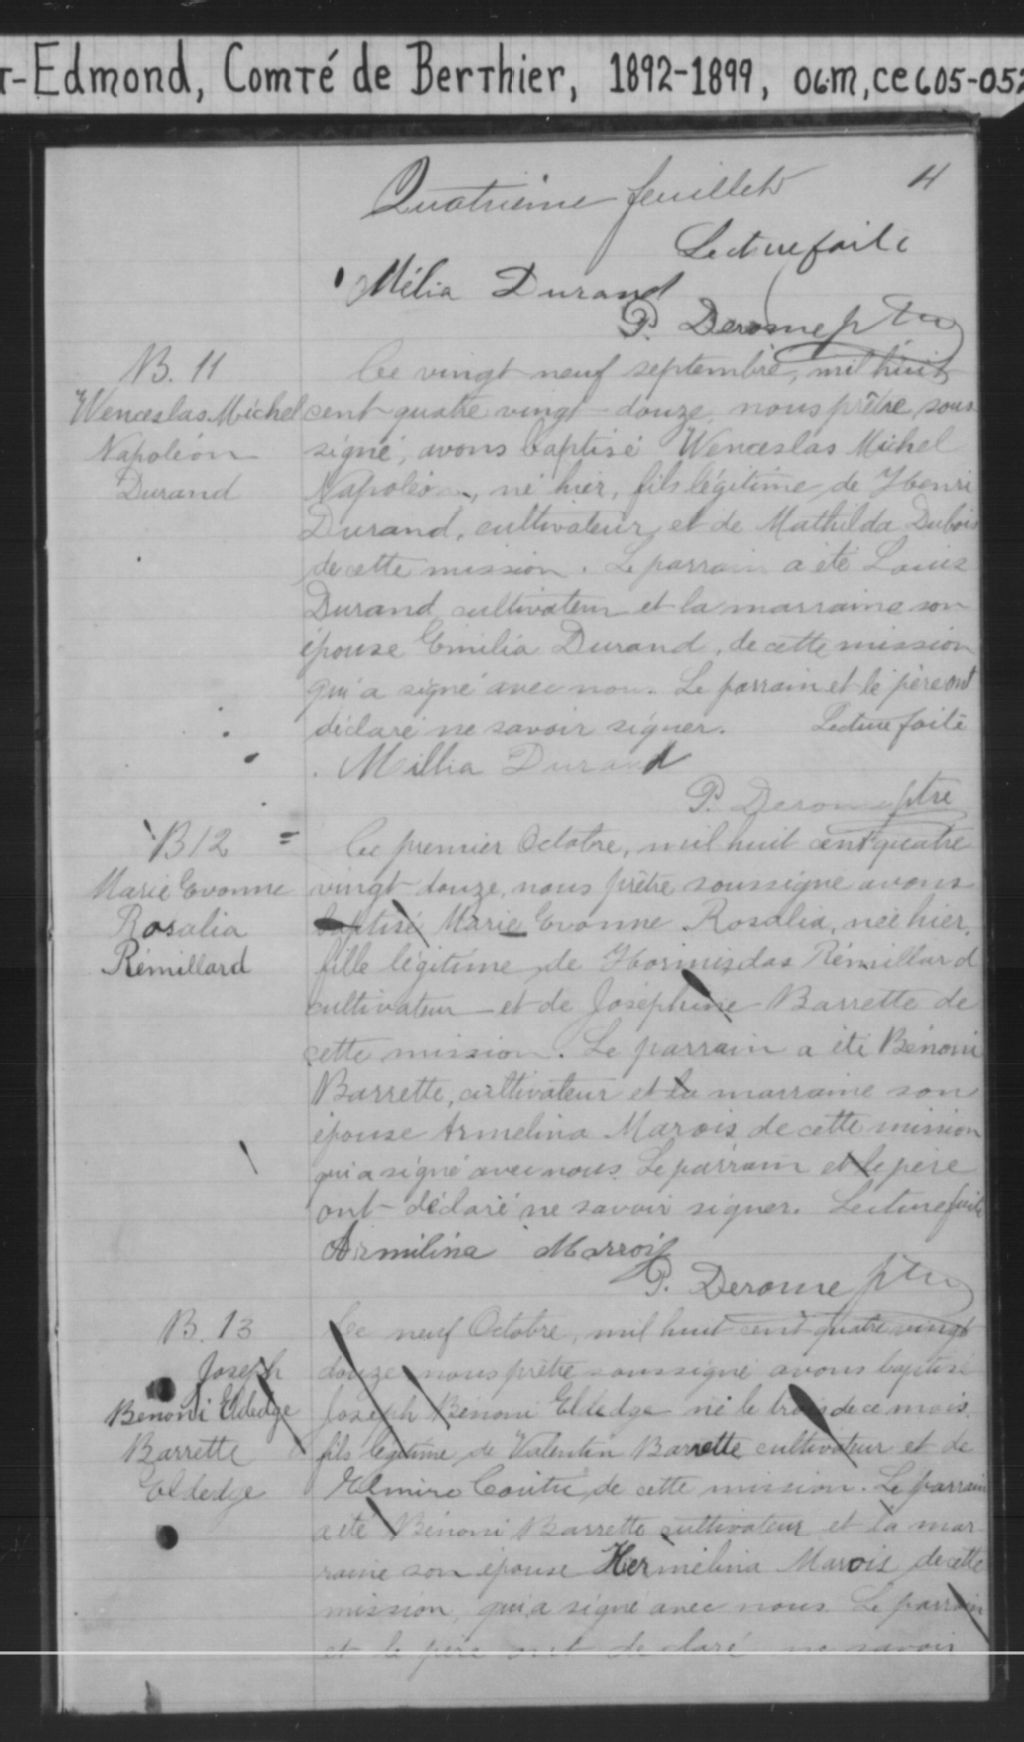 T-Edmond, Comté de Berthier, 1892-1899, 06M,CE605-052
Quatrième feuillet 4
Lecture faite
Mélia Durand
P. Derome ptre
B. 11
Wenceslas Michel
Napoléon
Durand
Ce vingt neuf septembre, mil huit
cent quatre vingt douze, nous prêtre sous
signé, avons baptisé Wenceslas Michel
Napoléon, né hier, fils légitime de Henri
Durand, cultivateur, et de Mathilda Dubois
de cette mission. Le parrain a été Louis
Durand cultivateur et la marraine son
épouse Emilia Durand, de cette mission
qui a signé avec nous. Le parrain et le père ont
déclaré ne savoir signer. Lecture faite
Millia Durand
P. Derome ptre
B 12 =
Marie Evonne
Rosalia
Rémillard
Ce premier Octobre, mil huit cent quatre
vingt douze, nous prêtre soussigné avons
baptisé Marie Evonne Rosalia, née hier,
fille légitime de Hormisdas Rémillard
cultivateur et de Joséphine Barrette de
cette mission. Le parrain a été Bénoni
Barrette, cultivateur et la marraine son
épouse Armelina Marois de cette mission
qui a signé avec nous. Le parrain et le père
ont déclaré ne savoir signer. Lecture faite
Armilina Marrois
P. Derome ptre
B. 13
Joseph
Benoni Elledge
Barrette
Elledge
Ce neuf Octobre, mil huit cent quatre vingt
douze nous prêtre soussigné avons baptisé
Joseph Bénoni Elledge né le trois de ce mois,
fils légitime de Valentin Barrette cultivateur et de
Elmire Coutu de cette mission. Le parrain
a été Bénoni Barrette cultivateur et la mar
raine son épouse Hermélina Marois de cette
mission, qui a signé avec nous. Le parrain
et le père ont déclaré ne savoir